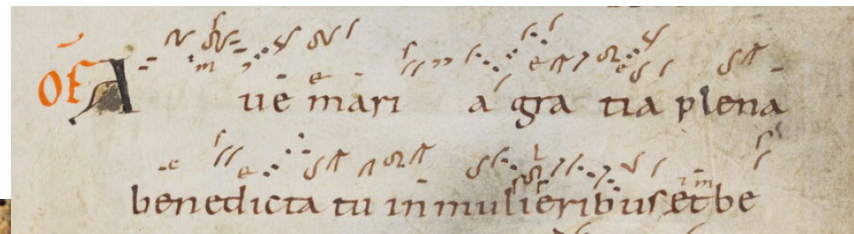 OF Aue mari a gra tia plena
benedicta tu in mulieribus et be